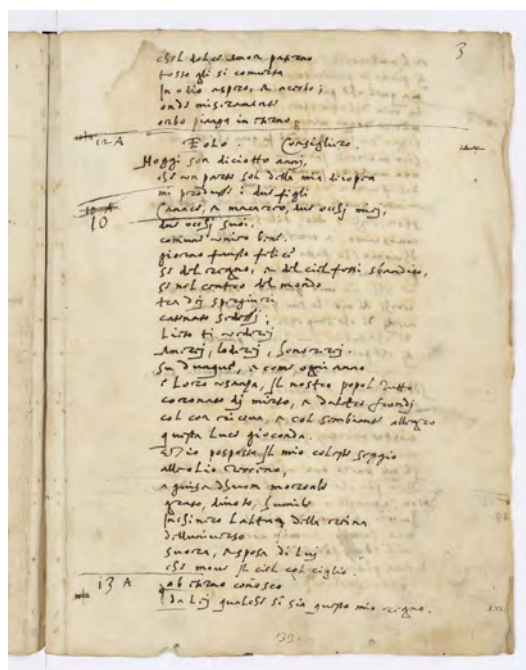 3
chel dolce amor paterno
tosto gli si converta
In odio aspro, et acerbo;
onde miseramente
orbo pianga in eterno.
12 A
Eolo. Consigliero.
Hoggi son diciotto anni,
che un parto sol della mia
mi produsse i due figli
10 A
10
Canace, et macareo, due occhj miej,
due occhj suoi,
comune unico bene.
giorno fausto felice
se del regno, et del ciel fossi sbandito,
se nel centro del mondo
tra dij spergiuri
catenato sedessj,
Lieto ti vederej
Amerej, loderej, honorerej.
Su dunque, et come ogni anno
è loro usanza, Il nostro popol tutto
coronato dj mirto, et d'altre frondj
col cor riceva, et col sembiante allegro
questa luce gioconda.
Et io posposto Il mio celeste seggio
terreno,
a guisa d'huom mortale
grato, divoto, humile
Inchinero della reina
dell'universo
suora, et sposa di Lui
che move Il ciel col ciglio.
13 A
ab eterno conosco
da Lej qualche si sia questo mio regno.